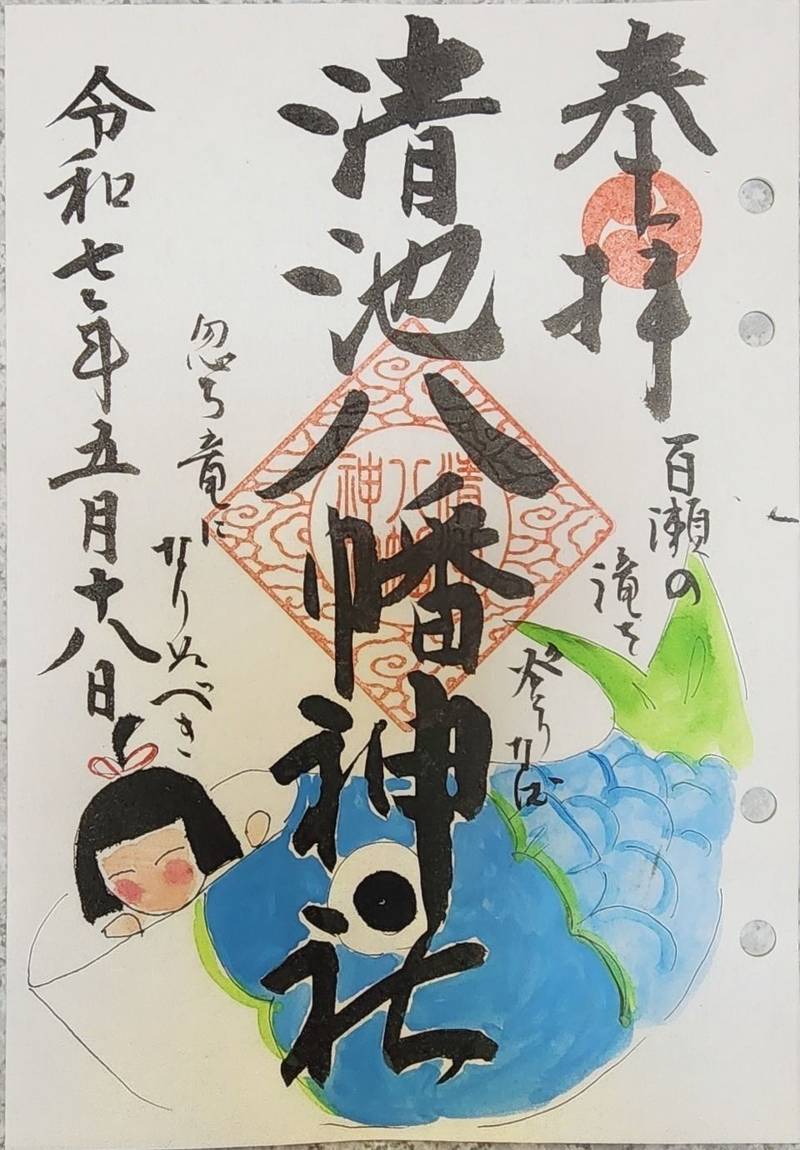 奉拝
百瀬の
滝を
登りなば
清池八幡神社
忽ち竜に
なりぬべき
令和七年五月十八日